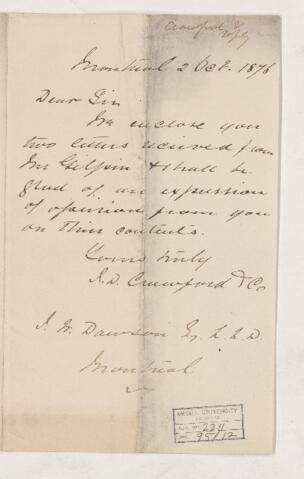 Crawford
Montreal 2 Oct. 1878
Dear Sir
We enclose you
two letters received from
Mr Gilpin & shall be
glad of an expression
of opinion from you
on their contents.
Yours truly
J.D. Crawford & Co
J. W. Dawson Esq L.L.D.
Montreal
McGILL UNIVERSITY
ARCHIVES
ACC. NO. 224
95/12